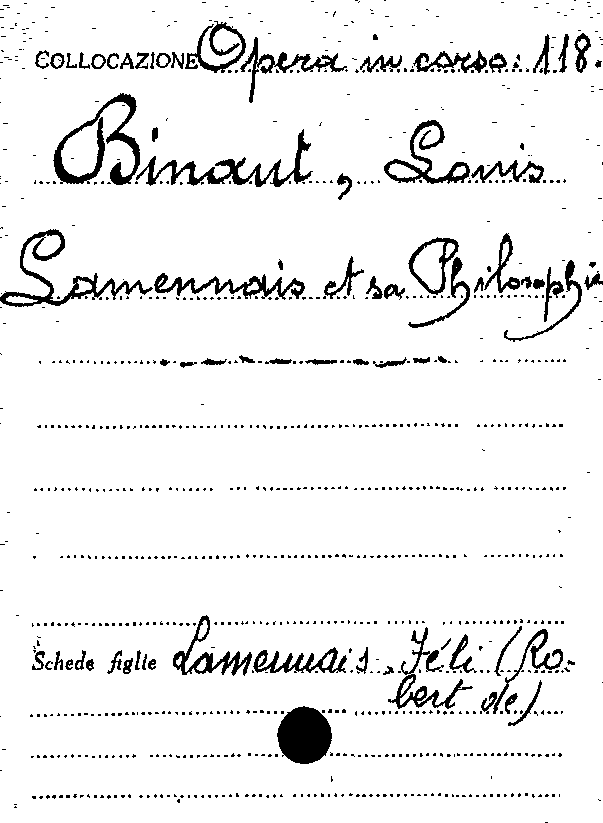 COLLOCAZIONE Opera in corso: 118.
Binaut, Louis
Lamennais et sa Philosophie
Schede figlie Lamennais, Féli (Ro-
bert de)